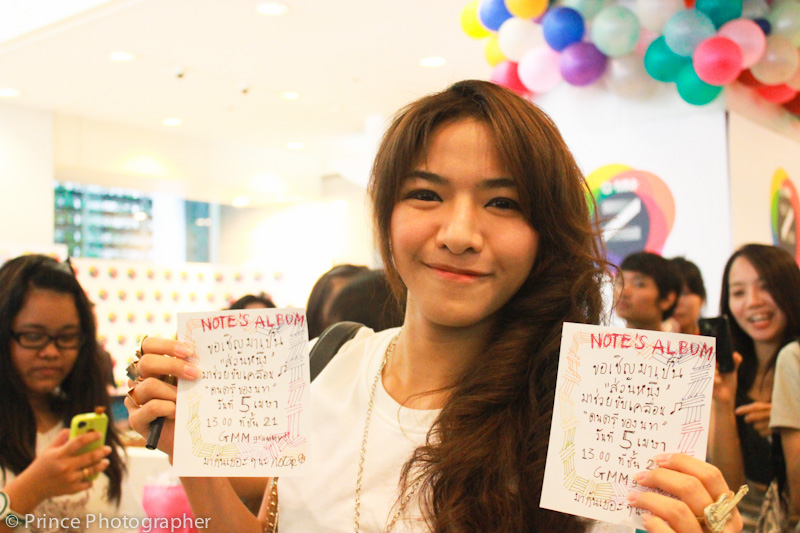 NOTE'S ALBUM
ขอเชิญมาเป็น
"ส่วนหนึ่ง"
มาช่วยขับเคลื่อน
"ดนตรีของนท"
วันที่ 5 เมษา
13.00 ที่ชั้น 21
GMM grammy
มากันเยอะๆนะ
NOTE'S ALBUM
ขอเชิญมาเป็น
"ส่วนหนึ่ง"
มาช่วยขับเคลื่อน
"ดนตรีของนท"
วันที่ 5 เมษา
13.00 ที่ชั้น 2
GMM
มากันเยอะ
© Prince Photographer